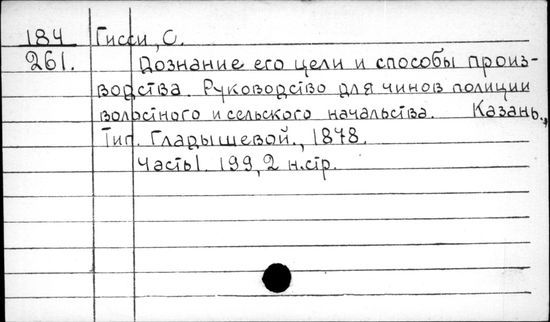 184 Гисси, С.
261. Дознание его цели и способы произ-
водства. Руководство для чинов полиции
волостного и сельского начальства. Казань,
Тип. Гладышевой., 1878.
Часть I. 199, 2 н.стр.